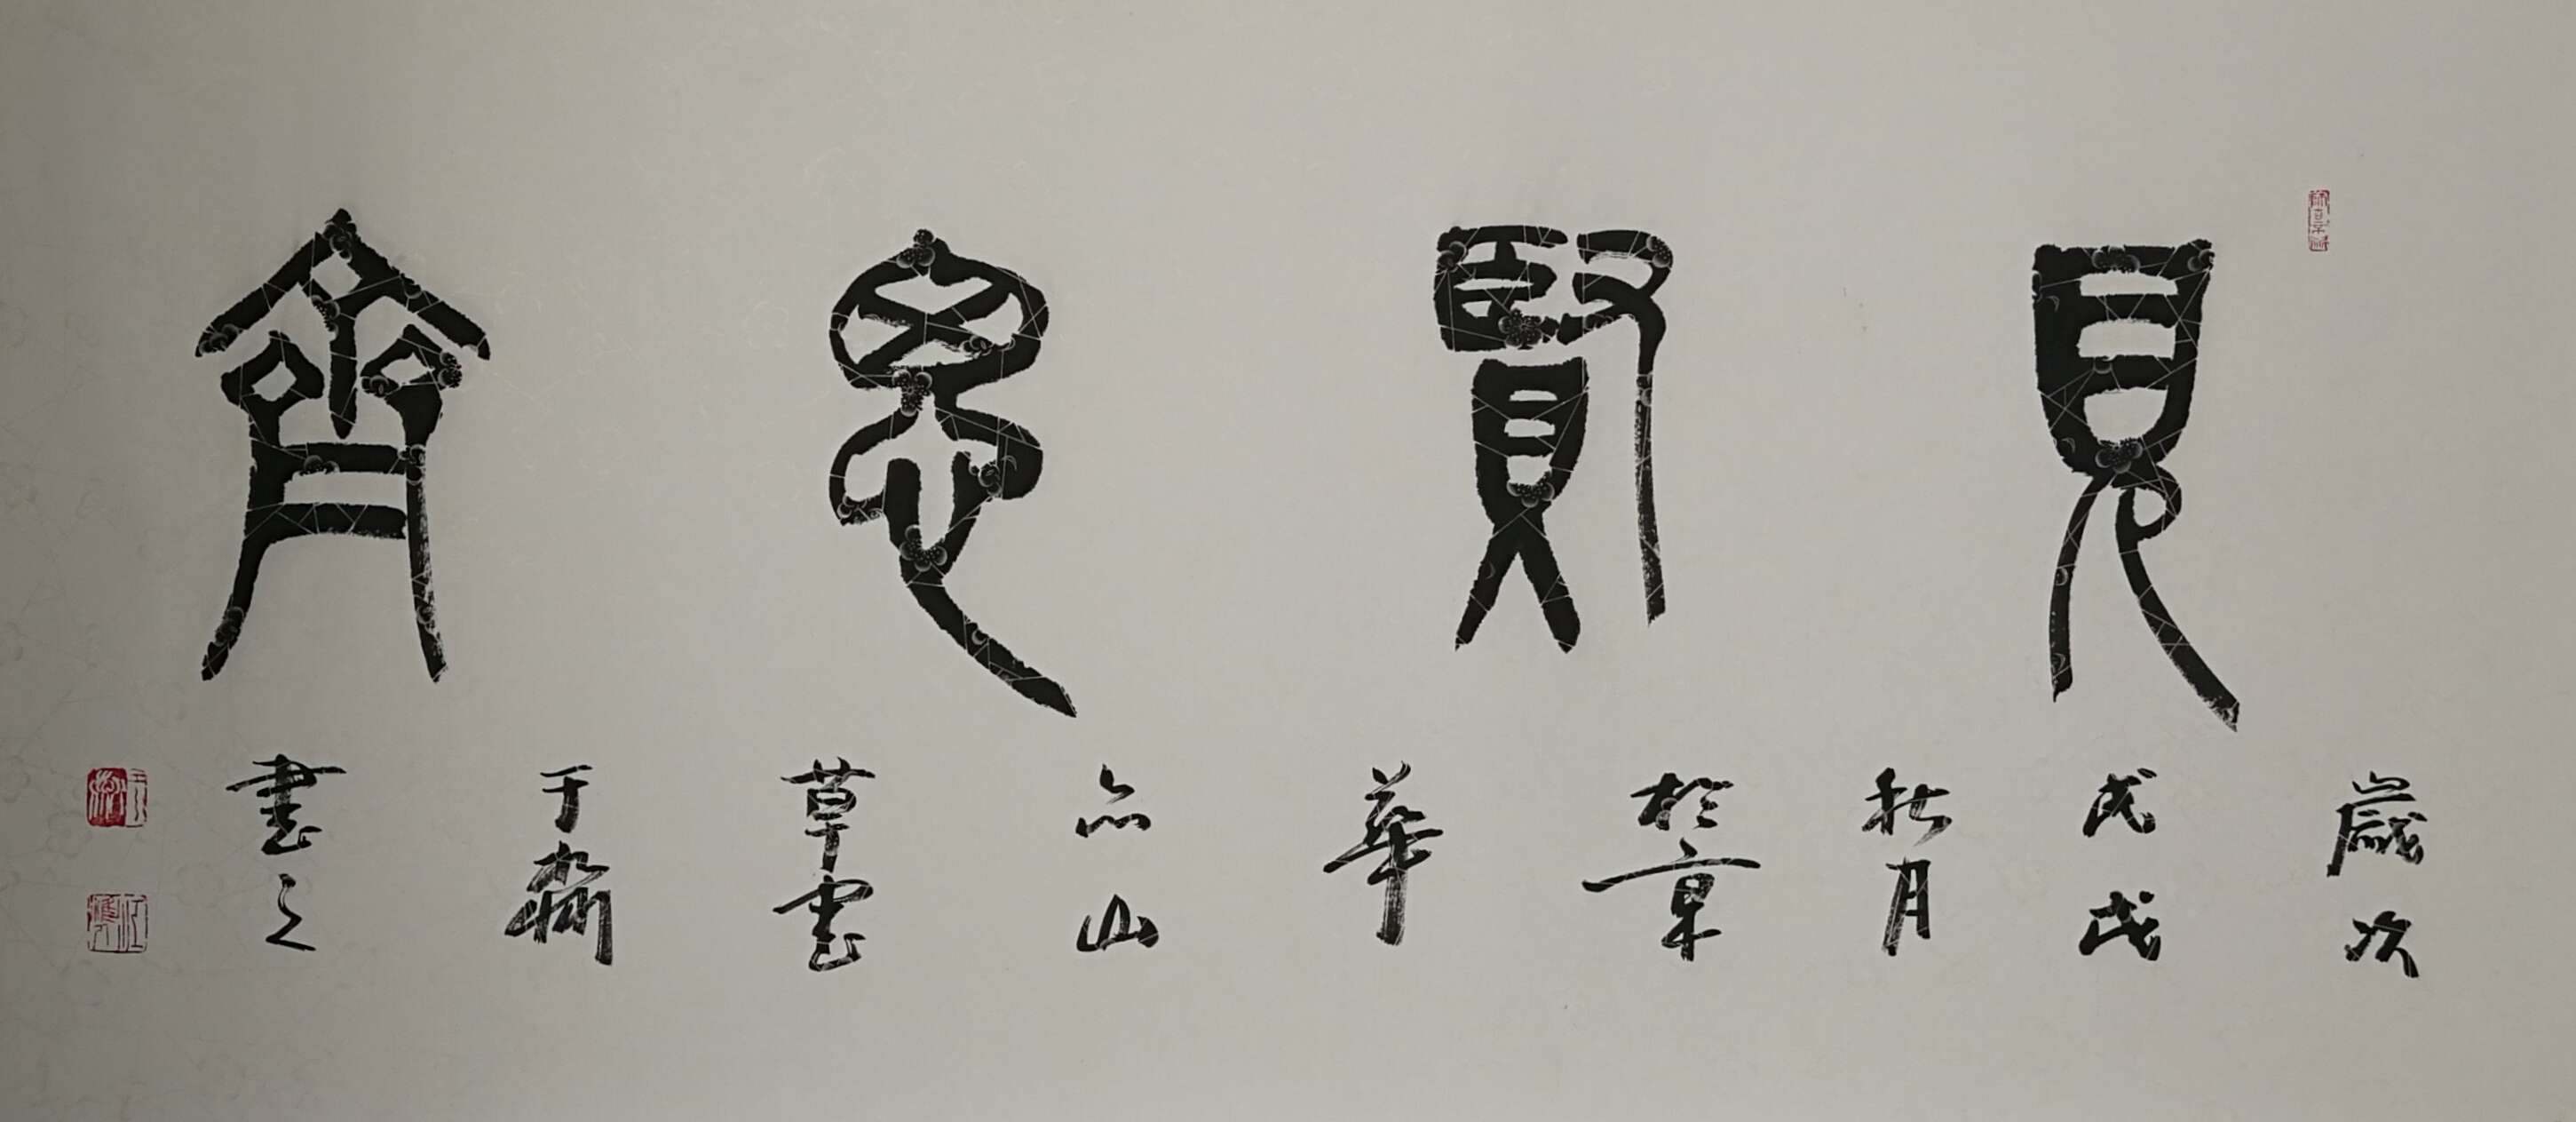 見賢思齊
歲次
戊戌
秋月
於京
華
亦山
草堂
于
書之